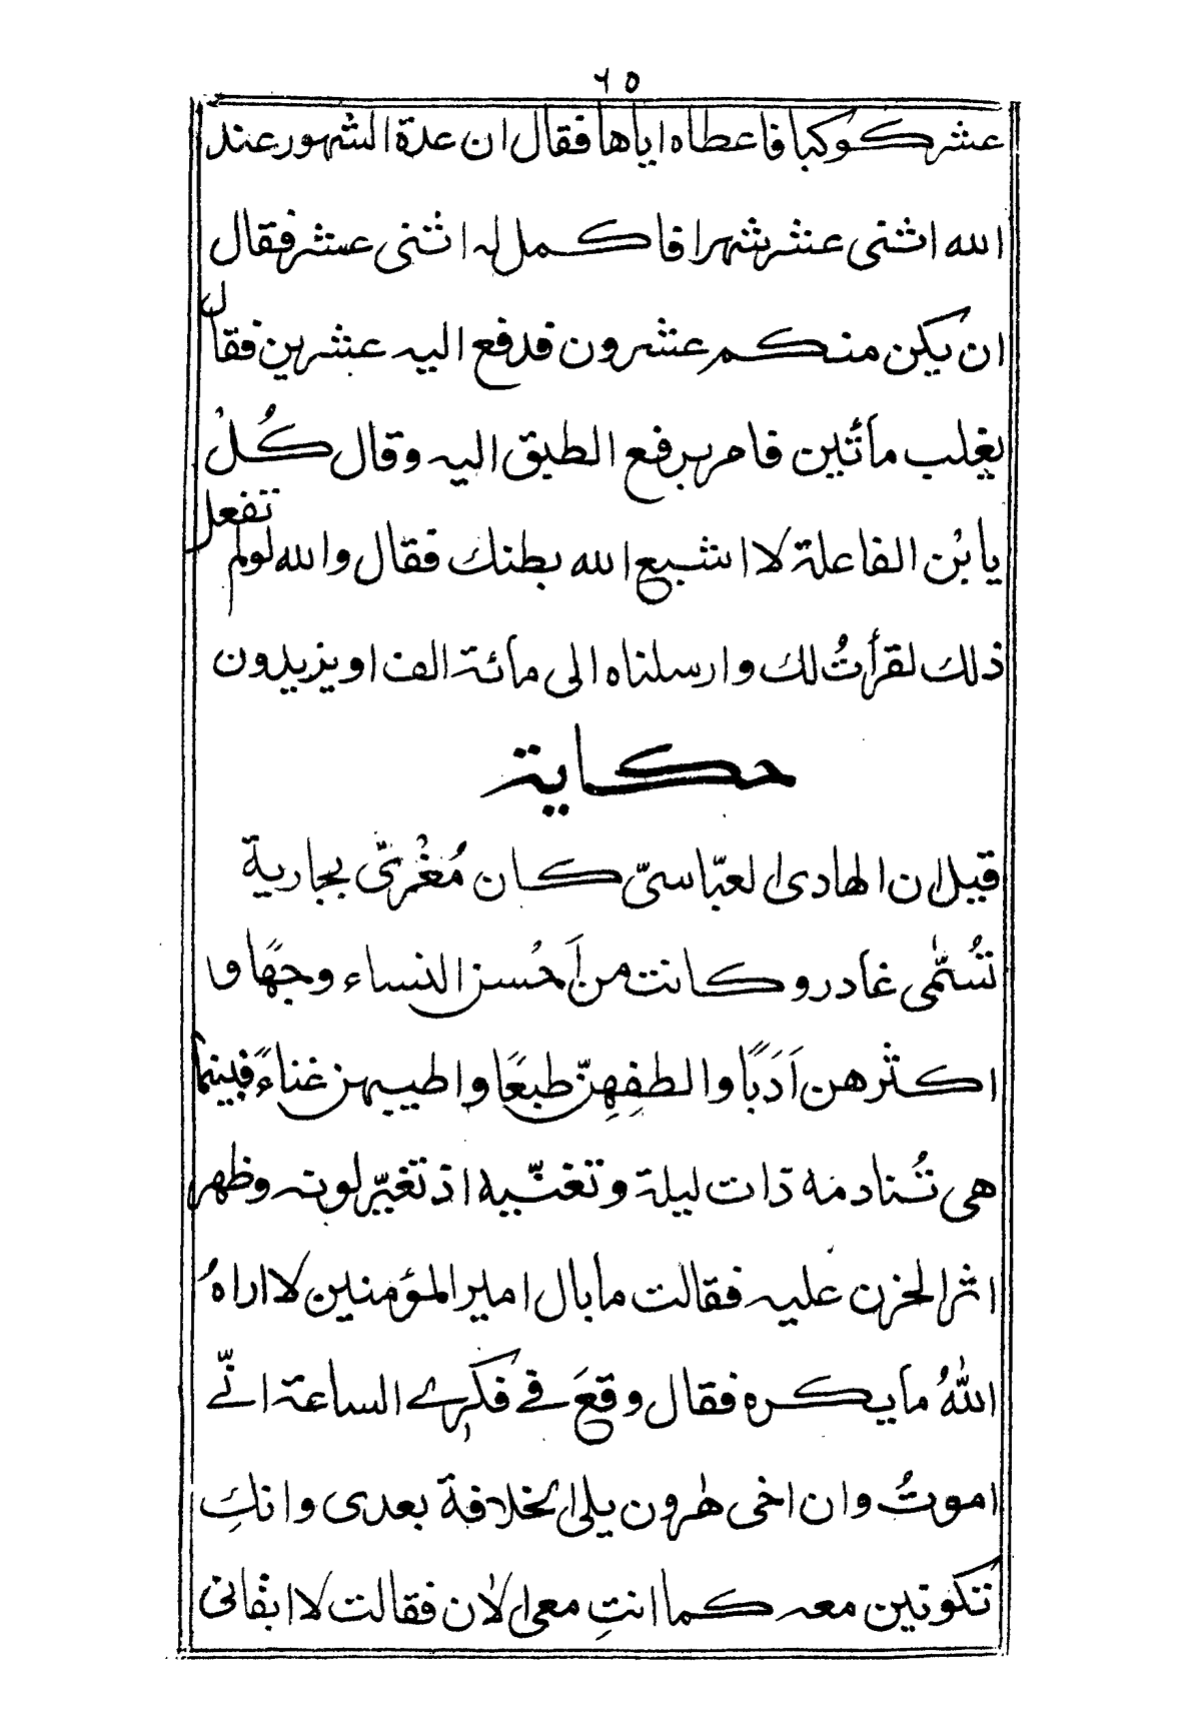 ٦٥
عشر كوكبا فاعطاه اياها فقال ان عدة الشهور عند
الله اثنى عشر شهرا فاكمل له اثنى عشر فقال
ان يكن منكم عشرون فدفع اليه عشرين فقال
يغلب مأتين فامر برفع الطبق اليه وقال كُلْ
يا بْن الفاعلة لا اشبع الله بطنك فقال والله لو لم تفعل
ذلك لقرأتُ لك وارسلناه الى مائة الف او يزيدون
حكاية
قيل ان الهادى العبّاسىّ كان مُغْرىً بجارية
تُسَمّٰى غادر وكانت من أَحُسن النساء وجهًا و
اكثرهن اَدَبًا والطفِهِنّ طبعًا واطيبهن غناءً فبينما
هى تُنادمه ذات ليلة وتغنّيه اذ تغيّر لونه وظهر
اثر الحزن عليه فقالت ما بال امير المؤمنين لا اراهُ
اللّٰهُ ما يكره فقال وقعَ فى فكرى الساعة انّى
اموتُ وان اخى هٰرون يلى الخلافة بعدى وانكِ
تكونين معه كما انتِ معى الاٰن فقالت لا ابقانى